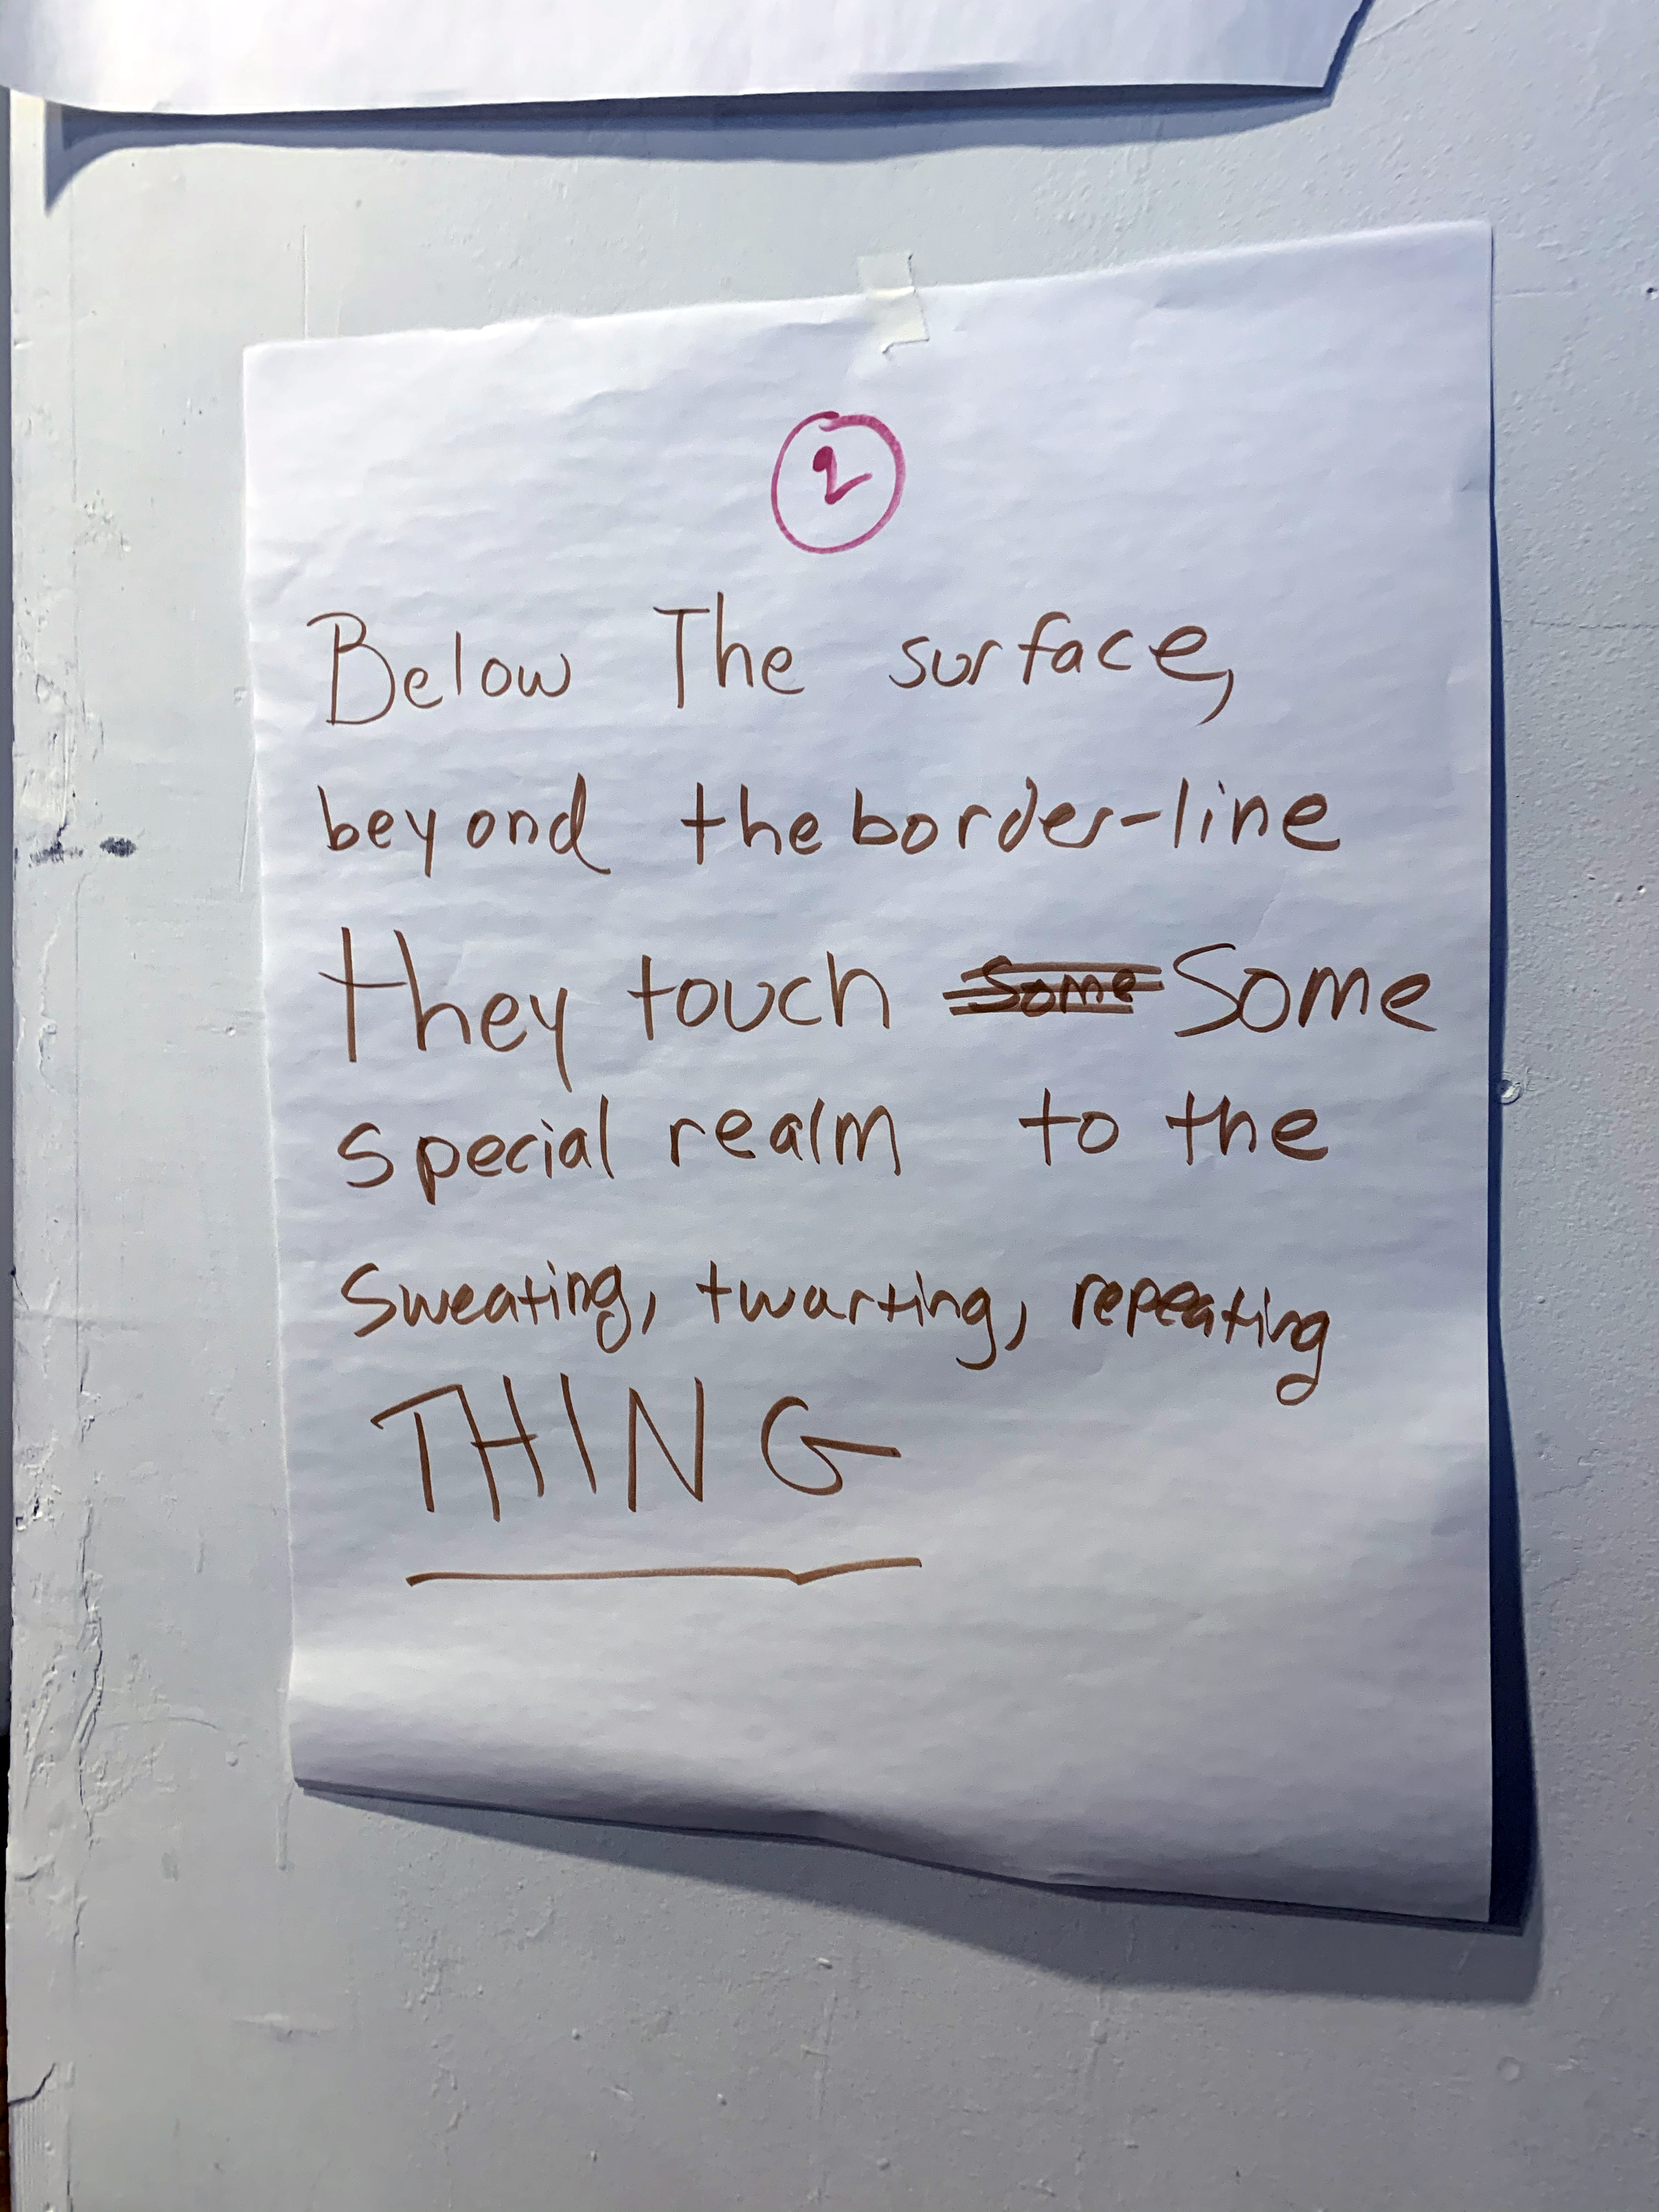 2
Below The surface,
beyond the border-line
they touch Some Some
special realm to the
Sweating, twarting, repeating
THING